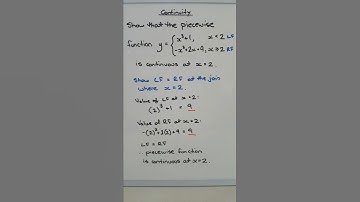 Continuity
Show that the piecewise
x³+1, x<2 LF
function y = {
-x²+2x+9, x≥2 RF
is continuous at x=2.
Show LF = RF at the join
where x=2.
Value of LF at x=2:
(2)³+1 = 9
Value of RF at x=2:
-(2)²+2(2)+9 = 9
LF = RF
∴ piecewise function
is continuous at x=2.